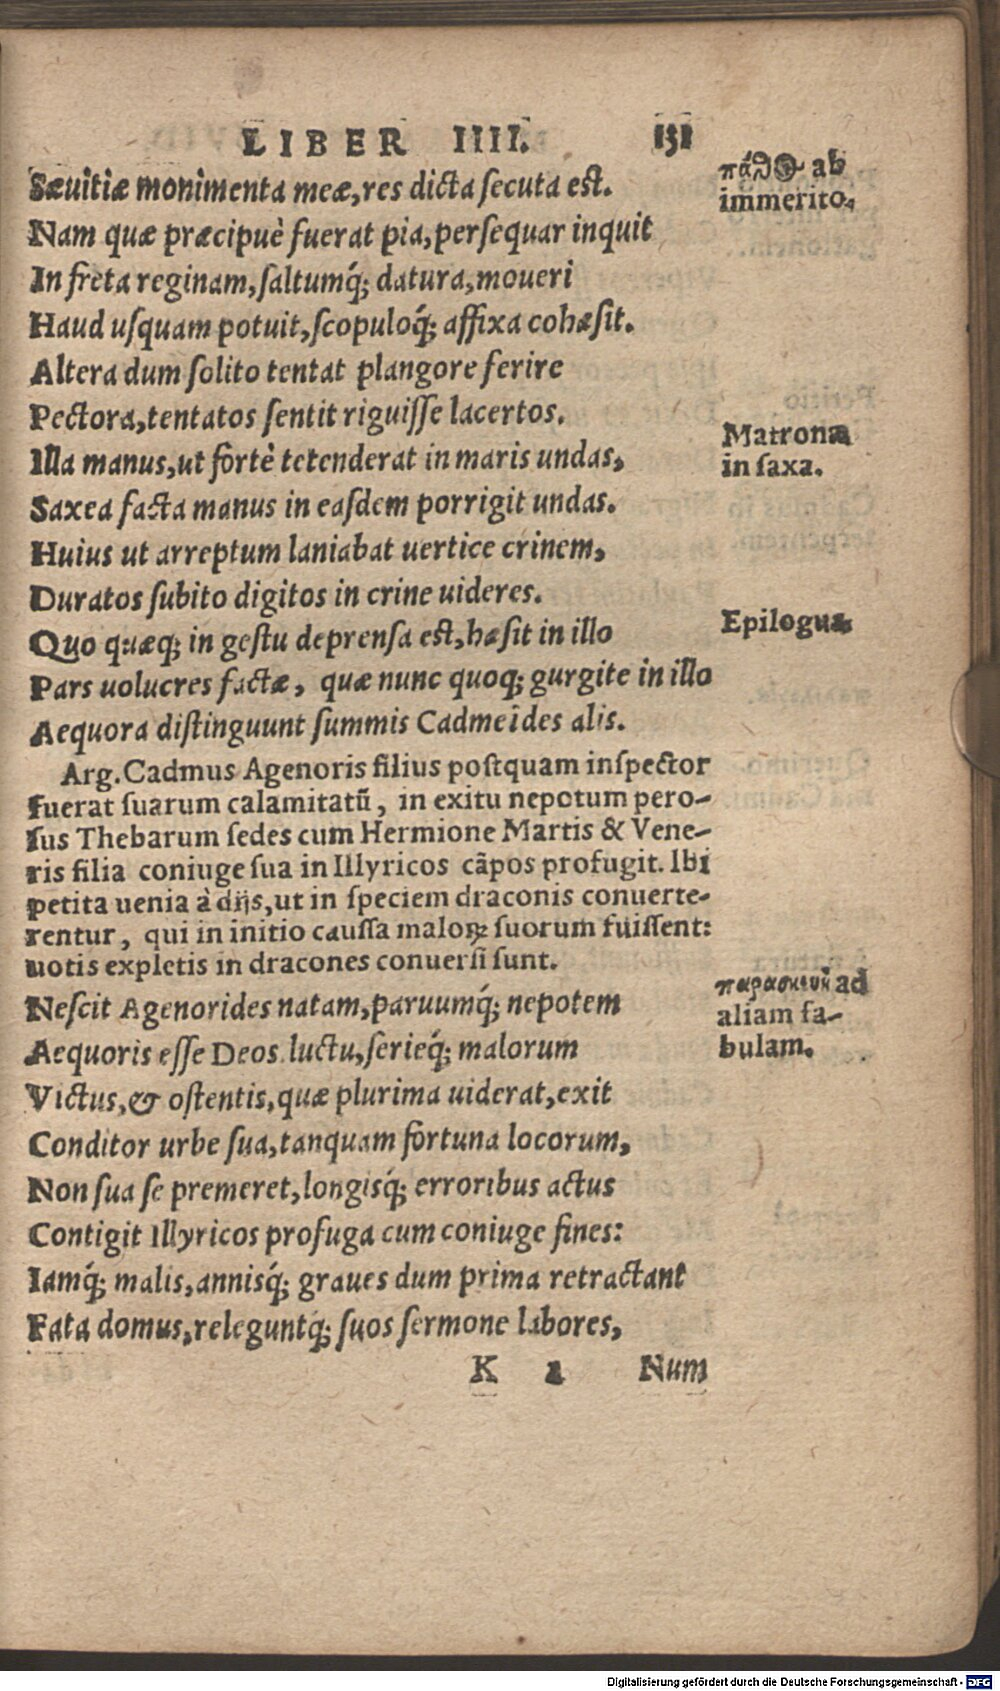 LIBER IIII. 151
Sæuitiæ monimenta meæ, res dicta ſecuta eſt.
πάθ⊙ ab
immerito.
Nam quæ præcipuè fuerat pia, perſequar inquit
In freta reginam, ſaltumq́; datura, moueri
Haud uſquam potuit, ſcopuloq́; affixa cohæſit.
Altera dum ſolito tentat plangore ferire
Pectora, tentatos ſentit riguiſſe lacertos.
Matronæ
in ſaxa.
Illa manus, ut fortè tetenderat in maris undas,
Saxea facta manus in eaſdem porrigit undas.
Huius ut arreptum laniabat uertice crinem,
Duratos ſubito digitos in crine uideres.
Epilogus
Quo quæq; in geſtu deprenſa eſt, hæſit in illo
Pars uolucres factæ, quæ nunc quoq; gurgite in illo
Aequora diſtinguunt ſummis Cadmeides alis.
Arg. Cadmus Agenoris filius poſtquam inſpector
fuerat ſuarum calamitatũ, in exitu nepotum pero-
ſus Thebarum ſedes cum Hermione Martis & Vene-
ris filia coniuge ſua in Illyricos cãpos profugit. Ibi
petita uenia à dijs, ut in ſpeciem draconis conuerte-
rentur, qui in initio cauſſa maloꝝ ſuorum fuiſſent:
uotis expletis in dracones conuerſi ſunt.
παρασκευὴ ad
aliam fa-
bulam.
Neſcit Agenorides natam, paruumq́; nepotem
Aequoris eſſe Deos luctu, ſerieq́; malorum
Victus, & oſtentis, quæ plurima uiderat, exit
Conditor urbe ſua, tanquam fortuna locorum,
Non ſua ſe premeret, longisq́; erroribus actus
Contigit Illyricos profuga cum coniuge fines:
Iamq́; malis, annisq́; graues dum prima retractant
Fata domus, releguntq́; ſuos ſermone labores,
K 2 Num
Digitalisierung gefördert durch die Deutsche Forschungsgemeinschaft - DFG